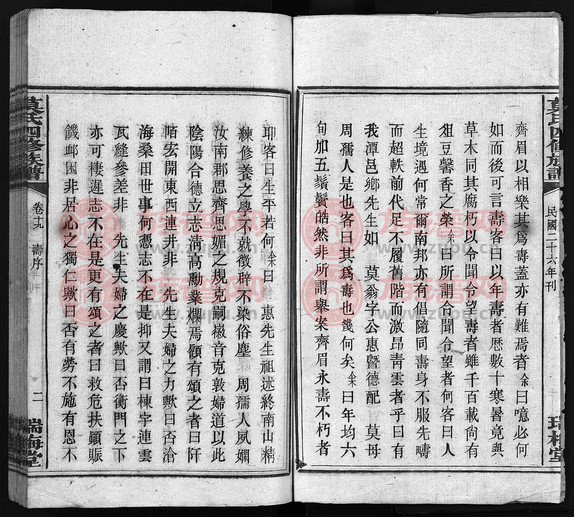 莫氏四修族譜
民國二十六年刊
齊眉以相樂其為壽蓋亦有難焉者余曰噫必何
如而後可言壽客曰以年壽者歷數十寒暑竟與
草木同其腐朽以令聞令望壽者雖千百載尚有
俎豆馨香之榮余曰所謂令聞令望者何客曰人
生境遇何常爾南邦亦有唱隨同壽身不服先疇
而超軼前代足不履舊階而激昂青雲者乎曰有
我潭邑鄉先生如 莫翁字公惠暨德配 莫母
周孺人是也客曰其為壽也幾何矣余曰年均六
旬加五鬚鬢皓然非所謂舉案齊眉永壽不朽者
耶客曰生平若何余曰 惠先生祖述終南山精
練修養之學不就徵辟不染俗塵 周孺人夙嫻
汝南郡思齊思媚之規克嗣徽音克敦婦道以此
陰陽合德立志清高勳業爛焉顧有頌之者曰阡
陌宏開東西連井非 先生夫婦之力歟曰否滄
海桑田世事何憑志不在是抑又謂曰棟宇連雲
瓦縫參差非 先生夫婦之慶歟曰否衡門之下
亦可棲遲志不在是更有頌之者曰救危扶顛賑
饑卹困非居心之獨仁歟曰否有勞不施有恩不
莫氏四修族譜
卷十九 壽序
二